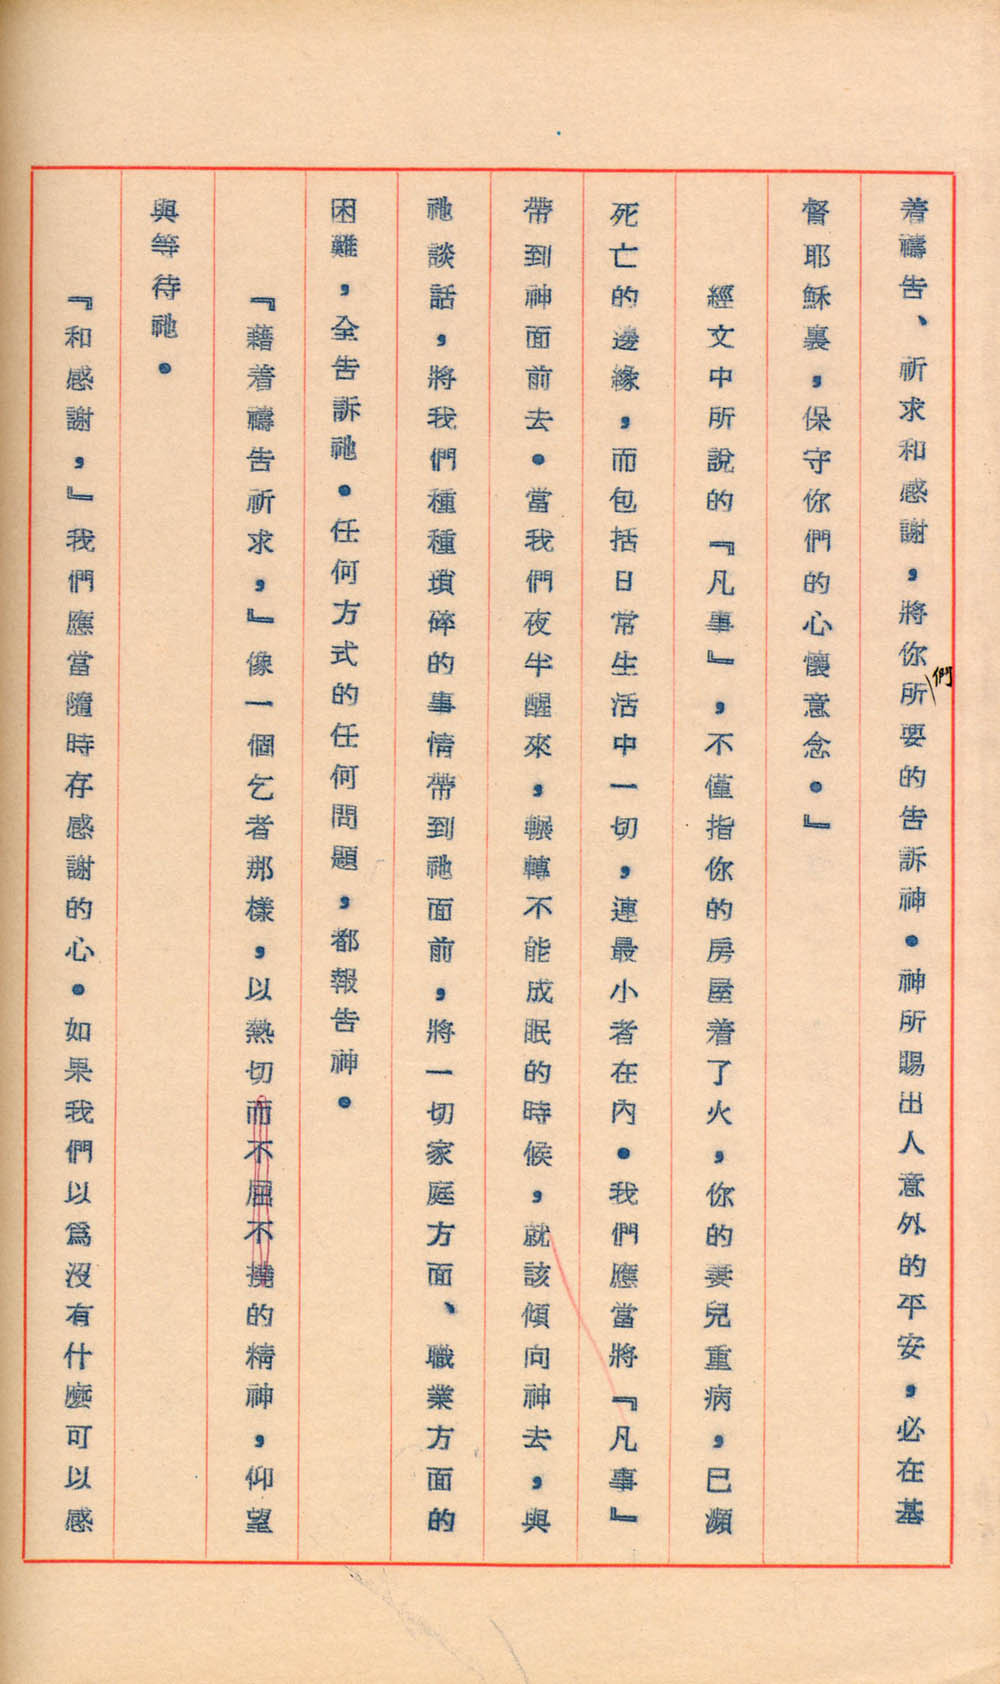 着禱告、祈求和感謝，將你們所要的告訴神。神所賜出人意外的平安，必在基
督耶穌裏，保守你們的心懷意念。』
經文中所說的『凡事』，不僅指你的房屋着了火，你的妻兒重病，已瀕
死亡的邊緣，而包括日常生活中一切，連最小者在內。我們應當將『凡事』
帶到神面前去。當我們夜半醒來，輾轉不能成眠的時候，就該傾向神去，與
祂談話，將我們種種瑣碎的事情帶到祂面前，將一切家庭方面、職業方面的
困難，全告訴祂。任何方式的任何問題，都報告神。
『藉着禱告祈求，』像一個乞者那樣，以熱切而不屈不撓的精神，仰望
與等待祂。
『和感謝，』我們應當隨時存感謝的心。如果我們以爲沒有什麼可以感